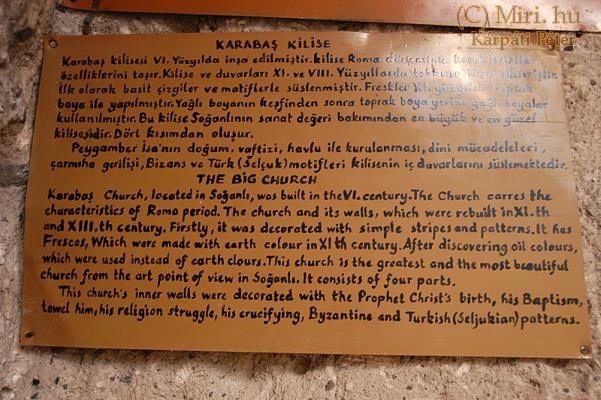 (C) Miri.hu
Kárpáti Péter
KARABAŞ KİLİSE
Karabaş kilisesi VI. Yüzyılda inşa edilmiştir. kilise Roma
özelliklerini taşır. Kilise ve duvarları XI. ve VIII. Yüzyıllarda
İlk olarak basit çizgiler ve motiflerle süslenmiştir. Freskler toprak
boya ile yapılmıştır. Yağlı boyanın keşfinden sonra toprak boya yerine yağlı boyalar
kullanılmıştır. Bu kilise Soğanlının sanat değeri bakımından en büyük ve en güzel
kilisesidir. Dört kısımdan oluşur.
Peygamber İsa'nın doğum, vaftizi, havlu ile kurulanması, dini mücadeleleri,
çarmıha gerilişi, Bizans ve Türk (Selçuk) motifleri kilisenin iç duvarlarını süslemektedir.
THE BIG CHURCH
Karabaş Church, located in Soğanlı, was built in the VI. century. The Church carres the
characteristics of Roma period. The church and its walls, which were rebuilt in XI.th
and XIII.th century. Firstly, it was decorated with simple stripes and patterns. It has
Frescos, Which were made with earth colour in XI th century. After discovering oil colours,
which were used instead of earth clours. This church is the greatest and the most beautiful
church from the art point of view in Soğanlı. It consists of four parts.
This church's inner walls were decorated with the Prophet Christ's birth, his Baptism,
towel him, his religion struggle, his crucifying, Byzantine and Turkish (Seljukian) patterns.